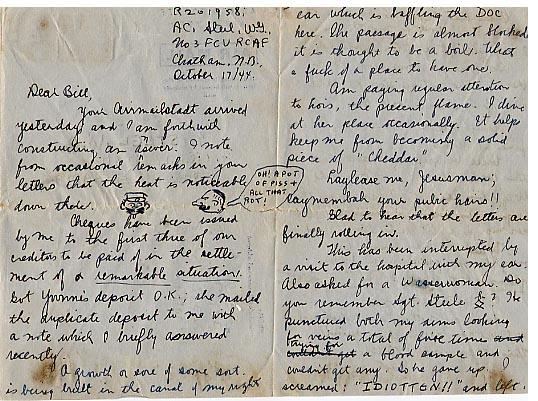 R261958.
AC, Steel, W.G.,
No 3 FCU RCAF
Chatham, N.B.,
October 17/44.
Dear Bill,
Your Airmailstadt arrived
yesterday and I am forthwith
constructing an answer. I note
from occasional remarks in your
letters that the heat is noticeable
down there.
OH! A POT
OF PISS +
ALL THAT
ROT!
Cheques have been issued
by me to the first three of our
creditors to be paid of in the settle-
ment of a remarkable situation.
Got Yvonne's deposit O.K.; she mailed
the duplicate deposit to me with
a note which I briefly answered
recently.
A growth or sore of some sort
is being built in the canal of my right
ear which is baffling the DOC
here. The passage is almost blocked
it is thought to be a boil. What
a fuck of a place to have one.
Am paying regular attention
to Lois, the present flame. I dine
at her place occasionally. It helps
keep me from becoming a solid
piece of "Cheddar"
Jesusman;
your pubic hairs!!
Glad to hear that the letters are
finally rolling in.
This has been interrupted by
a visit to the hospital with my ear.
Also asked for a Do
you remember Sgt. Steele ? She
punctured both my arms looking
for veins a total of five times and
a blood sample and
couldn't get any. So she gave up. I
screamed: "IDIOTTEN!!" and left.